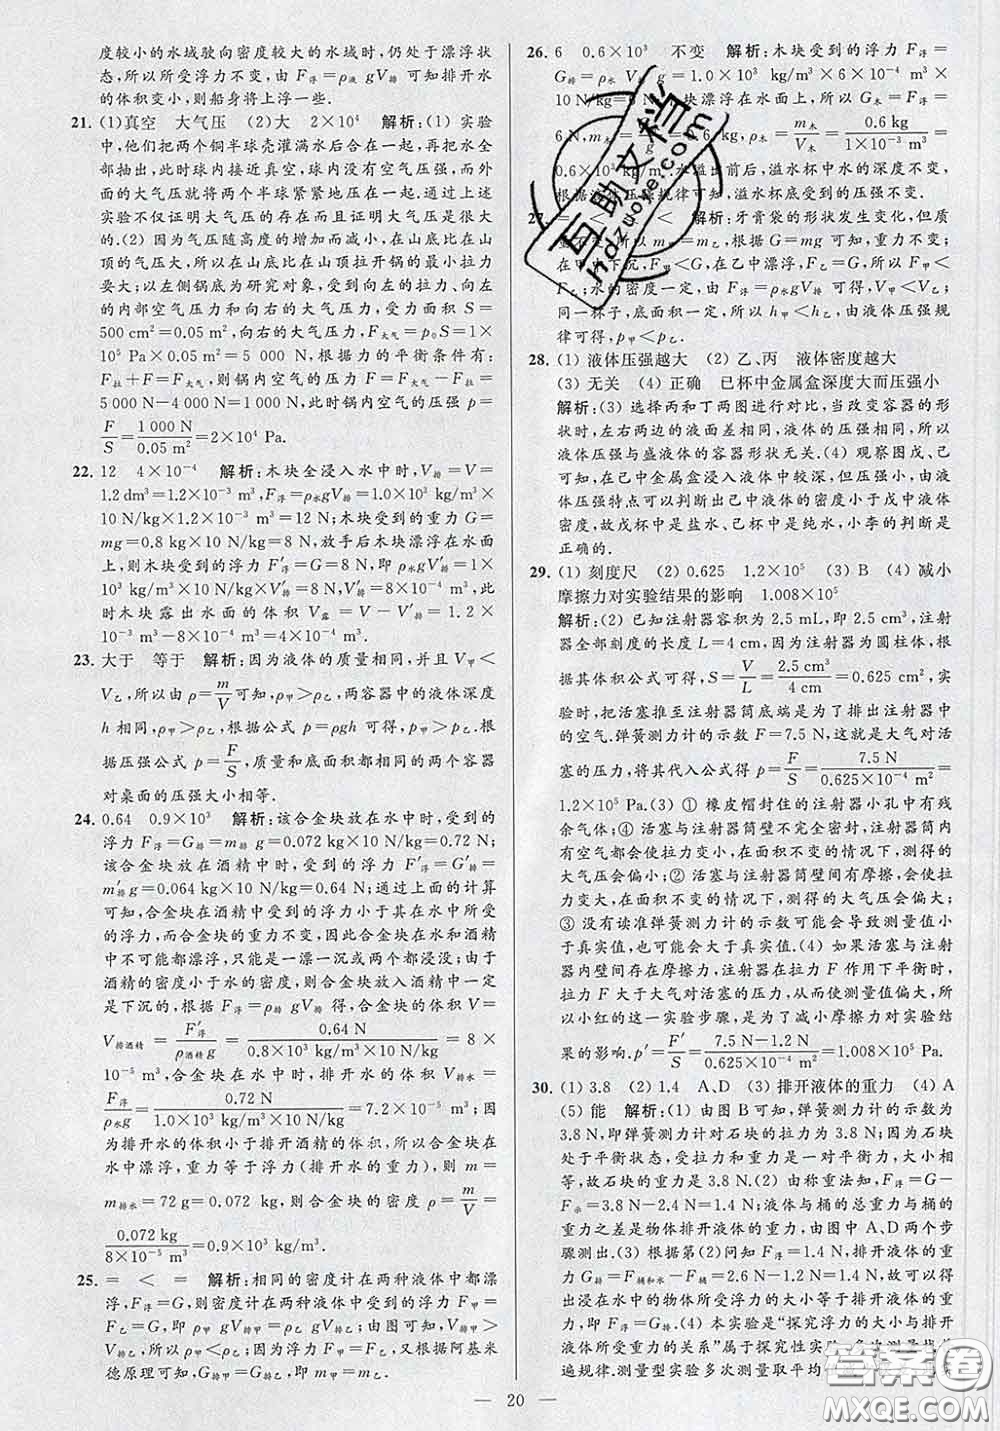 度较小的水域驶向密度较大的水域时,仍处于漂浮状
态,所以所受浮力不变,由 F浮=ρ液 gV排 可知排开水
的体积变小,则船身将上浮一些.
21. (1)真空 大气压 (2)大 2×10⁴ 解析:(1) 实验
中,他们把两个铜半球壳灌满水后合在一起,再把水全
部抽出,此时球内接近真空,球内没有空气压强,而外
面的大气压就将两个半球紧紧地压在一起,通过上述
实验不仅证明大气压的存在而且证明大气压是很大
的.(2) 因为气压随高度的增加而减小,在山底比在山
顶的气压大,所以在山底比在山顶拉开锅的最小拉力
要大;以左侧锅底为研究对象,受到向左的拉力、向左
的内部空气压力和向右的大气压力,受力面积 S=
500 cm²=0.05 m²,向右的大气压力,F大气=p₀S=1×
10⁵ Pa×0.05 m²=5 000 N,根据力的平衡条件有:
F拉+F=F大气,则锅内空气的压力 F=F大气-F拉=
5 000 N-4 000 N=1 000 N,此时锅内空气的压强 p=
F/S=1 000 N/0.05 m²=2×10⁴ Pa.
22. 12 4×10⁻⁴ 解析:木块全浸入水中时,V排=V=
1.2 dm³=1.2×10⁻³ m³,F浮=ρ水gV排=1.0×10³ kg/m³×
10 N/kg×1.2×10⁻³ m³=12 N;木块受到的重力 G=
mg=0.8 kg×10 N/kg=8 N,放手后木块漂浮在水面
上,则木块受到的浮力 F′浮=G=8 N,即 ρ水gV′排=1×
10³ kg/m³×10 N/kg×V′排=8 N,V′排=8×10⁻⁴ m³,
此时木块露出水面的体积 V露=V-V′排=1.2×
10⁻³ m³-8×10⁻⁴ m³=4×10⁻⁴ m³.
23. 大于 等于 解析:因为液体的质量相同,并且 V甲<
V乙,所以由 ρ=m/V可知,ρ甲>ρ乙,两容器中的液体深度
h 相同,ρ甲>ρ乙,根据公式 p=ρgh 可得,p甲>p乙,根
据压强公式 p=F/S,质量和底面积都相同的两个容器
对桌面的压强大小相等.
24. 0.64 0.9×10³ 解析:该合金块放在水中时,受到的
浮力 F浮=G排=m排g=0.072 kg×10 N/kg=0.72 N;
该合金块放在酒精中时,受到的浮力 F′浮=G′排=
m′排g=0.064 kg×10 N/kg=0.64 N;通过上面的计算
可知,合金块在酒精中受到的浮力小于其在水中所受
的浮力,而合金块的重力不变,因此合金块在水和酒精
中不可能都漂浮,只能是一漂一沉或两个都浸没;由于
酒精的密度小于水的密度,则合金块在酒精中一定
是下沉的.根据 F浮=ρ排 gV排 得,合金块的体积 V=
V排酒精=F′浮/ρ酒精g=0.64 N/0.8×10³ kg/m³×10 N/kg=8×
10⁻⁵ m³,合金块在水中时,排开水的体积 V排水=
F浮/ρ水g=0.72 N/1.0×10³ kg/m³×10 N/kg=7.2×10⁻⁵ m³;因
为排开水的体积小于排开酒精的体积,所以合金块在
水中漂浮,重力等于浮力(排开水的重力),则 m=
m排水=72 g=0.072 kg,则合金块的密度 ρ=m/V=
0.072 kg/8×10⁻⁵ m³=0.9×10³ kg/m³.
25. = < = 解析:相同的密度计在两种液体中都漂
浮,F浮=G,则密度计在两种液体中受到的浮力 F甲=
F乙=G,即 ρ甲 gV排甲=ρ乙 gV排乙;由图可知,V排甲>
V排乙,则ρ甲<ρ乙;因为浮力 F甲=F乙,根据阿基米
德原理可知,G排甲=F甲=F乙=G排乙,即 G排甲=G排乙.
26. 6 0.6×10³ 不变 解析:木块受到的浮力 F浮=
G排=ρ水 V g=1.0×10³ kg/m³×6×10⁻⁴ m³×
10 N/kg=6 块漂浮在水面上,所以 G木=F浮=
6 N,m木= 6 kg,ρ木=m木/V木=0.6 kg/1×10⁻³ m³=
0.6×10³ kg/m 溢出前后,溢水杯中水的深度不变,
根据 规律可知,溢水杯底受到的压强不变.
27. = < < 解析:牙膏袋的形状发生变化,但质
量不变,所以 m甲=m乙,根据 G=mg 可知,重力不变;
在甲 下沉,F甲<G,在乙中漂浮,F乙=G,所以 F甲<
F乙;水的密度一定,由 F浮=ρ水gV排 可得,V甲<V乙;
同一杯子,底面积相同,所以 h甲<h乙,由液体压强规
律可得,p甲<p乙.
28. (1) 液体压强越大 (2) 乙、丙 液体密度越大
(3) 无关 (4) 正确 已杯中金属盒深度大而压强小
解析:(3) 选择丙和丁两图进行对比,当改变容器的形
状时,左右两侧的液面差相同,液体的压强相同,所以
液体压强与盛液体的容器形状无关.(4) 观察图戊、己
可知,在己中金属盒浸入液体中较深,但压强较小,由
液体压强特点可以判断出己中液体的密度小于戊中液体
密度,故戊杯中是盐水、己杯中是纯水,小李的判断是
正确的.
29. (1) 刻度尺 (2) 0.625 1.2×10⁵ (3) B (4) 减小
摩擦力对实验结果的影响 1.008×10⁵
解析:(2) 已知注射器容积为 2.5 mL,即 2.5 cm³,注射
器全部刻度的长度 L=4 cm,因为注射器为圆柱体,根
据其体积公式可得,S=V/L=2.5 cm³/4 cm=0.625 cm²,实
验时,把活塞推至注射器筒底端是为了排出注射器中
的空气.弹簧测力计的示数 F=7.5 N,这就是大气对活
塞的压力,将其代入公式可得 p=F/S=7.5 N/0.625×10⁻⁴ m²=
1.2×10⁵ Pa.(3) ① 橡皮帽封住的注射器小孔中有残
余气体;④ 活塞与注射器筒壁不完全密封,注射器筒内
有空气都会使拉力变小,在面积不变的情况下,测得的
大气压会偏小;② 活塞与注射器筒壁间有摩擦,会使拉
力变大,在面积不变的情况下,测得的大气压会偏大;
③ 没有读准弹簧测力计的示数可能会导致测量值小
于真实值,也可能会大于真实值.(4) 如果活塞与注射
器内壁间存在摩擦力,注射器在拉力 F 作用下平衡时,
拉力 F 大于大气对活塞的压力,从而使测量值偏大,所
以小红的这一实验步骤,是为了减小摩擦力对实验结
果的影响.p′=F′/S=7.5 N-1.2 N/0.625×10⁻⁴ m²=1.008×10⁵ Pa.
30. (1) 3.8 (2) 1.4 A、D (3) 排开液体的重力 (4) A
(5) 能 解析:(1) 由图 B 可知,弹簧测力计的示数为
3.8 N,即弹簧测力计对石块的拉力为 3.8 N;因为石块
处于平衡状态,受拉力和重力为一对平衡力,大小相
等,故石块的重力为 3.8 N.(2) 由称重法知,F浮=G-
F示=3.8 N-2.4 N=1.4 N;液体与桶的总重力与桶的
重力之差是物体排开液体的重力,由图中 A、D 两个步
骤测出.(3) 根据第(2)问知 F浮=1.4 N,排开液体的重
力 G排=F桶和水-F桶=2.6 N-1.2 N=1.4 N,故可以得
出浸在水中的物体所受浮力的大小等于排开液体的重
力,即 F浮=G排.(4) 本实验是“探究浮力的大小与排开
液体所受重力的关系”属于探究性实验,多次测量
遍规律.测量型实验多次测量取平均
20
互助文档
hdzuoye.com
答案卷
MXQE.COM